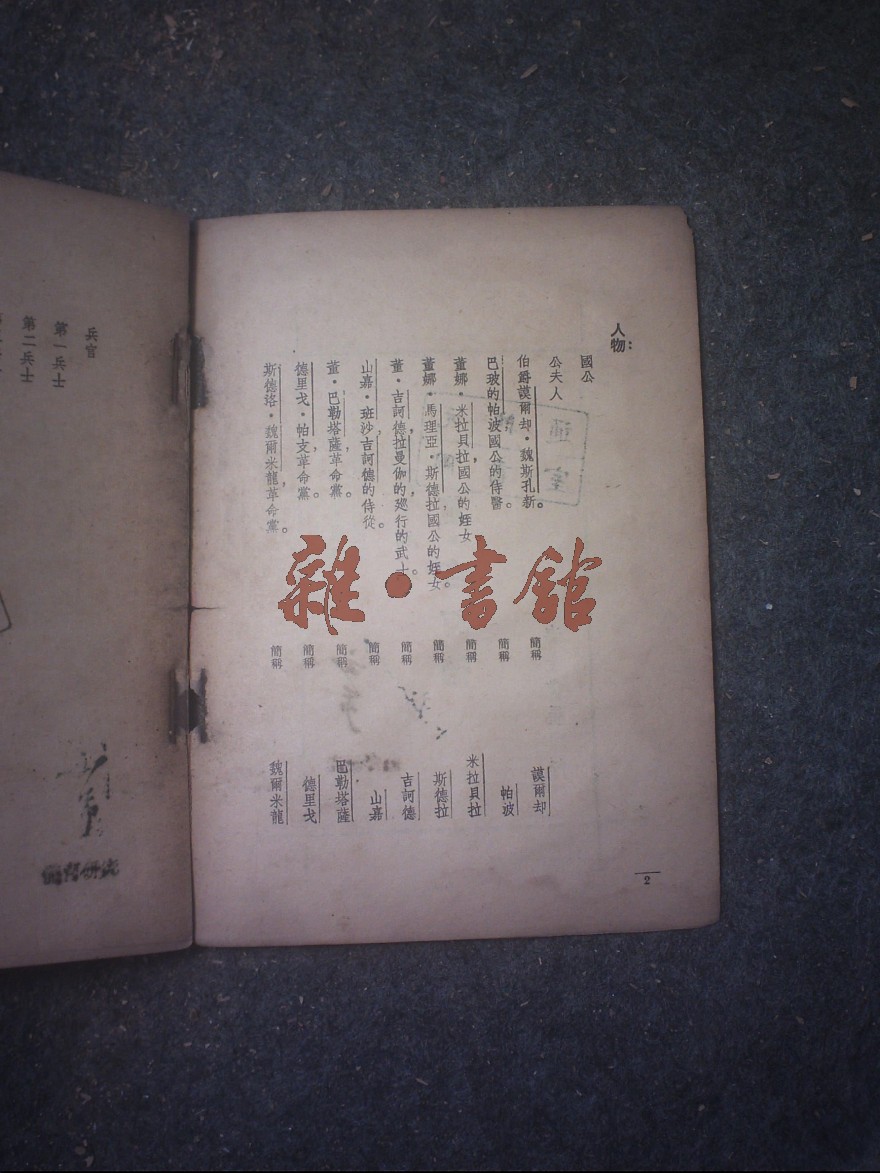 人物：
國公
公夫人
伯爵謨爾却·魏斯孔新。 簡稱 謨爾却
巴玻的帕波國公的侍醫。 簡稱 帕波
董娜·米拉貝拉國公的姪女 簡稱 米拉貝拉
董娜·馬理亞·斯德拉，國公的姪女。 簡稱 斯德拉
董·吉訶德拉曼伽的廵行的武士。 簡稱 吉訶德
山嘉·班沙，吉訶德的侍從。 簡稱 山嘉
董·巴勒塔薩，革命黨。 簡稱 巴勒塔薩
德里戈·帕支，革命黨。 簡稱 德里戈
斯德珞·魏爾米龍，革命黨。 簡稱 魏爾米龍
2
兵官
第一兵士
第二兵士
雜·書館